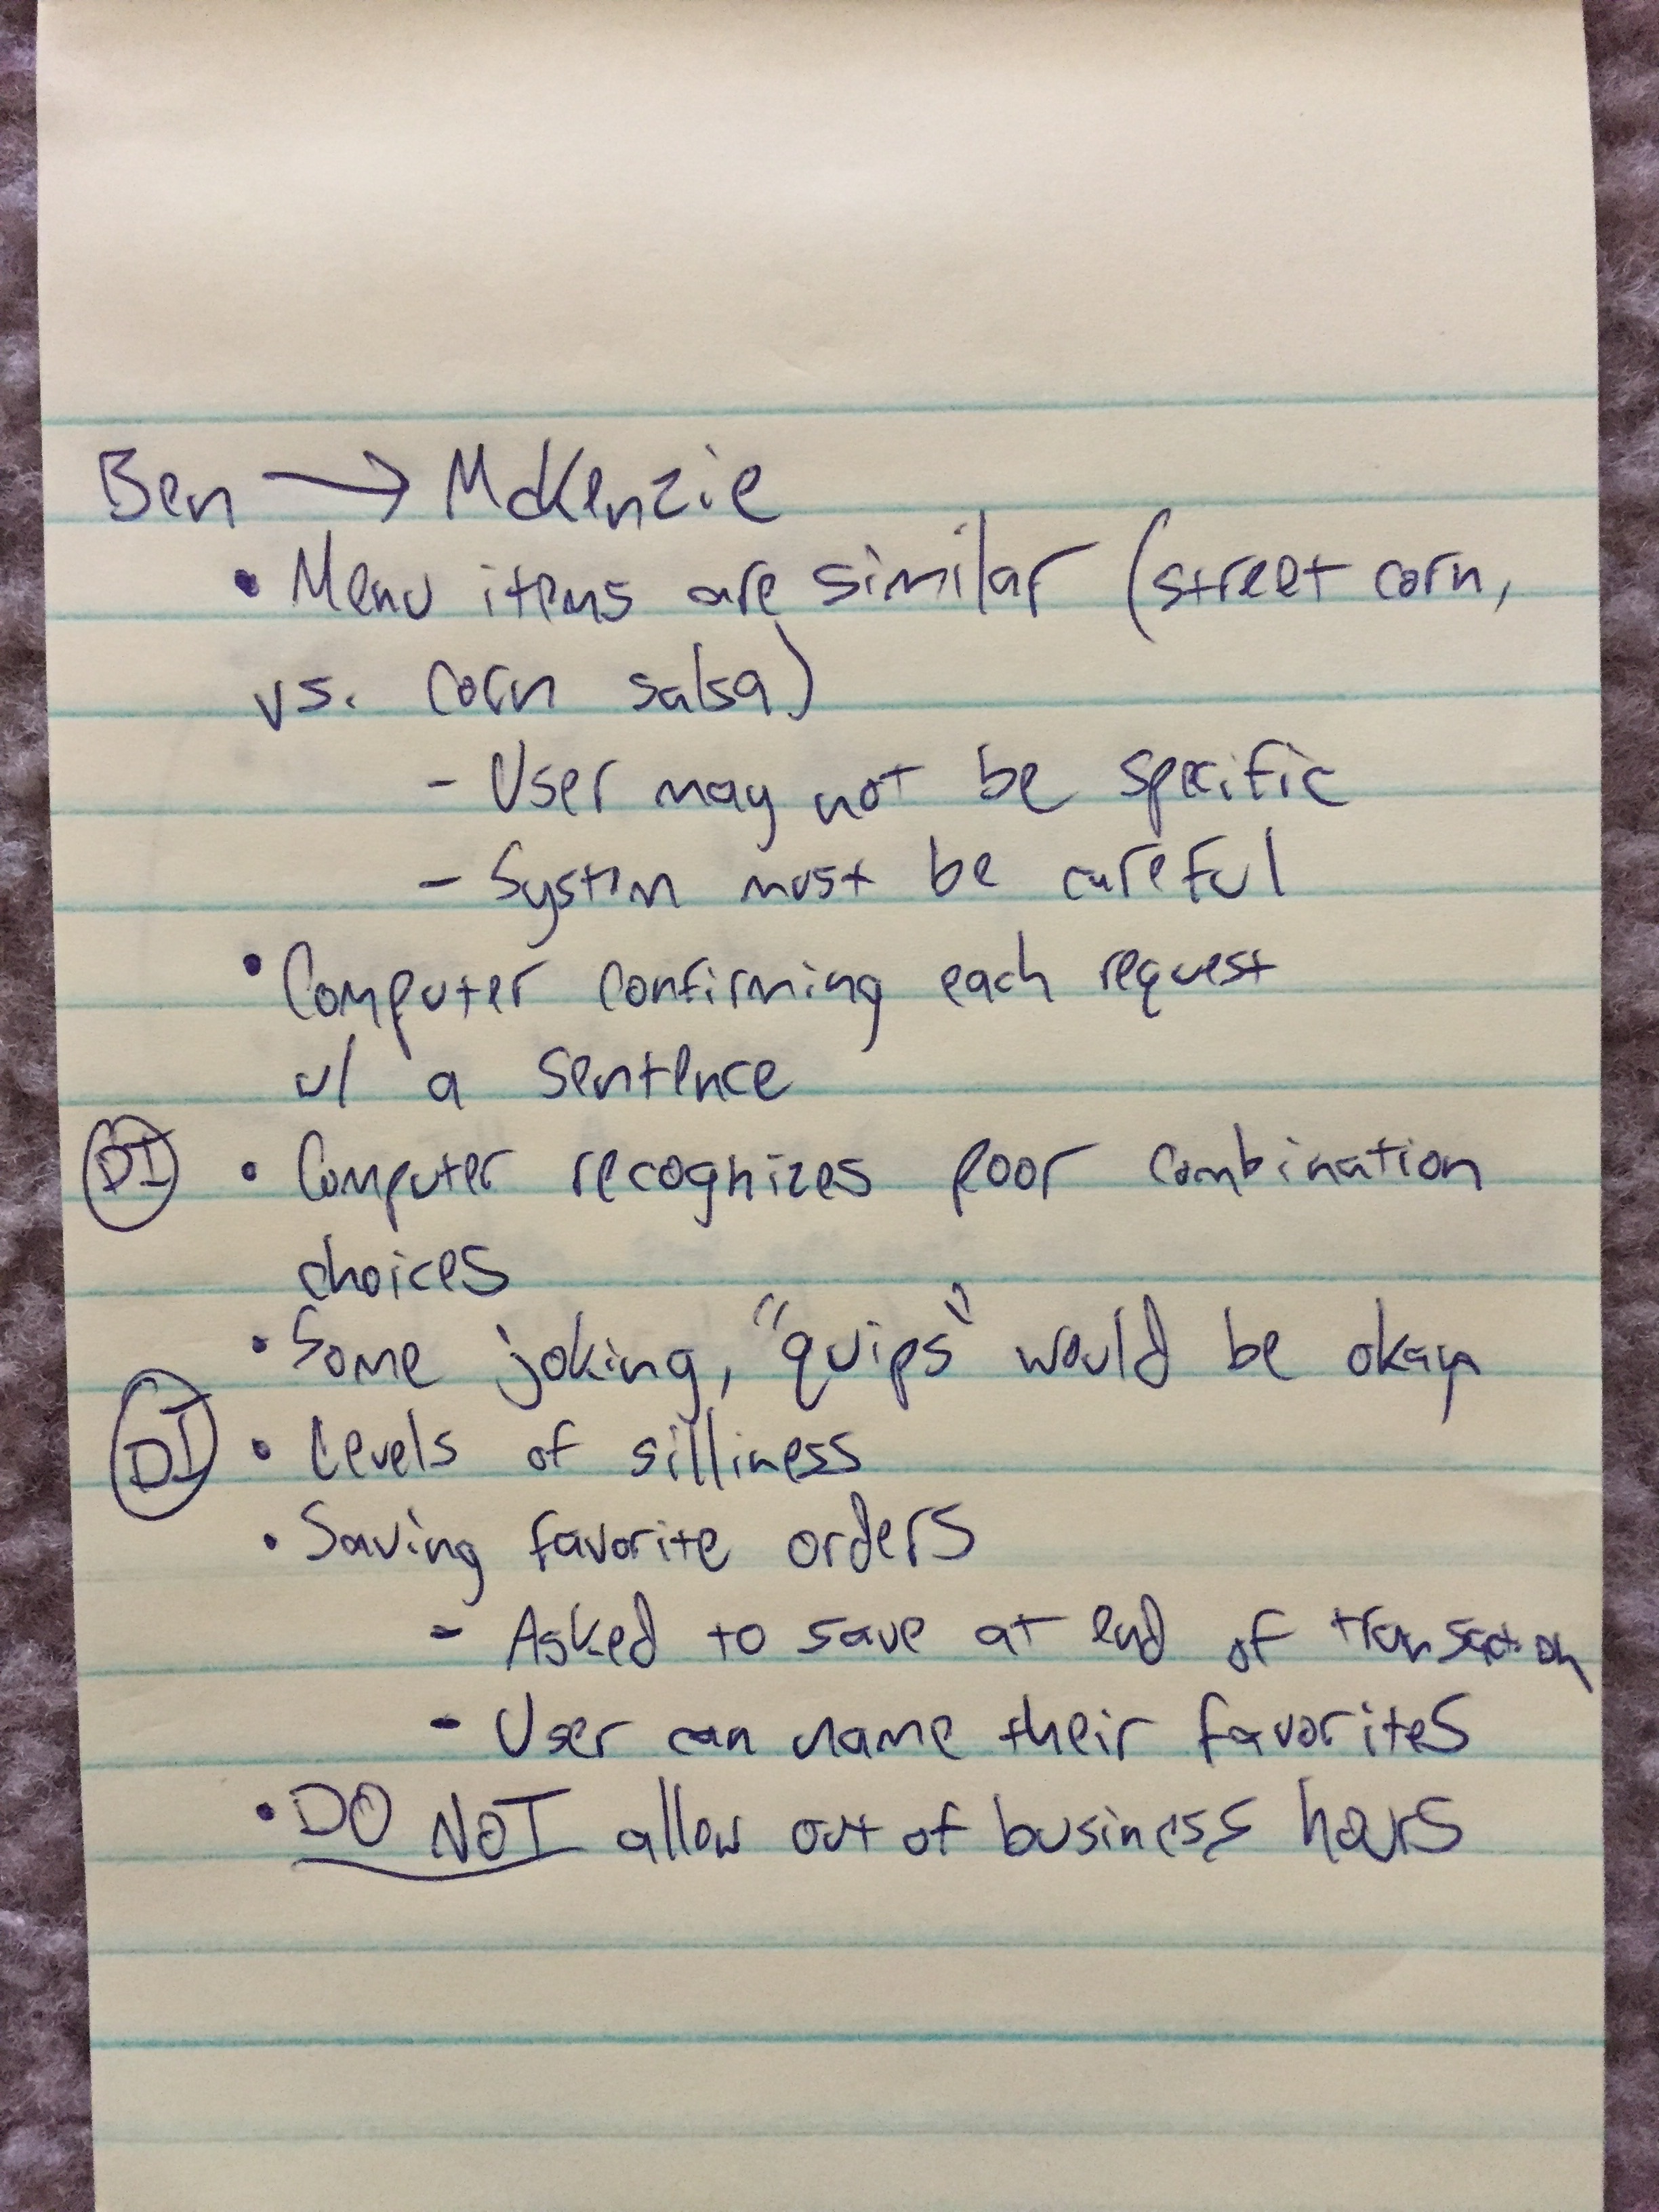 Ben → McKenzie
• Menu items are similar (street corn,
vs. corn salsa)
- User may not be specific
- System must be careful
• Computer confirming each request
w/ a sentence
DI • Computer recognizes poor combination
choices
• Some joking, "quips" would be okay
DI • Levels of silliness
• Saving favorite orders
- Asked to save at end of transaction
- User can name their favorites
• DO NOT allow out of business hours